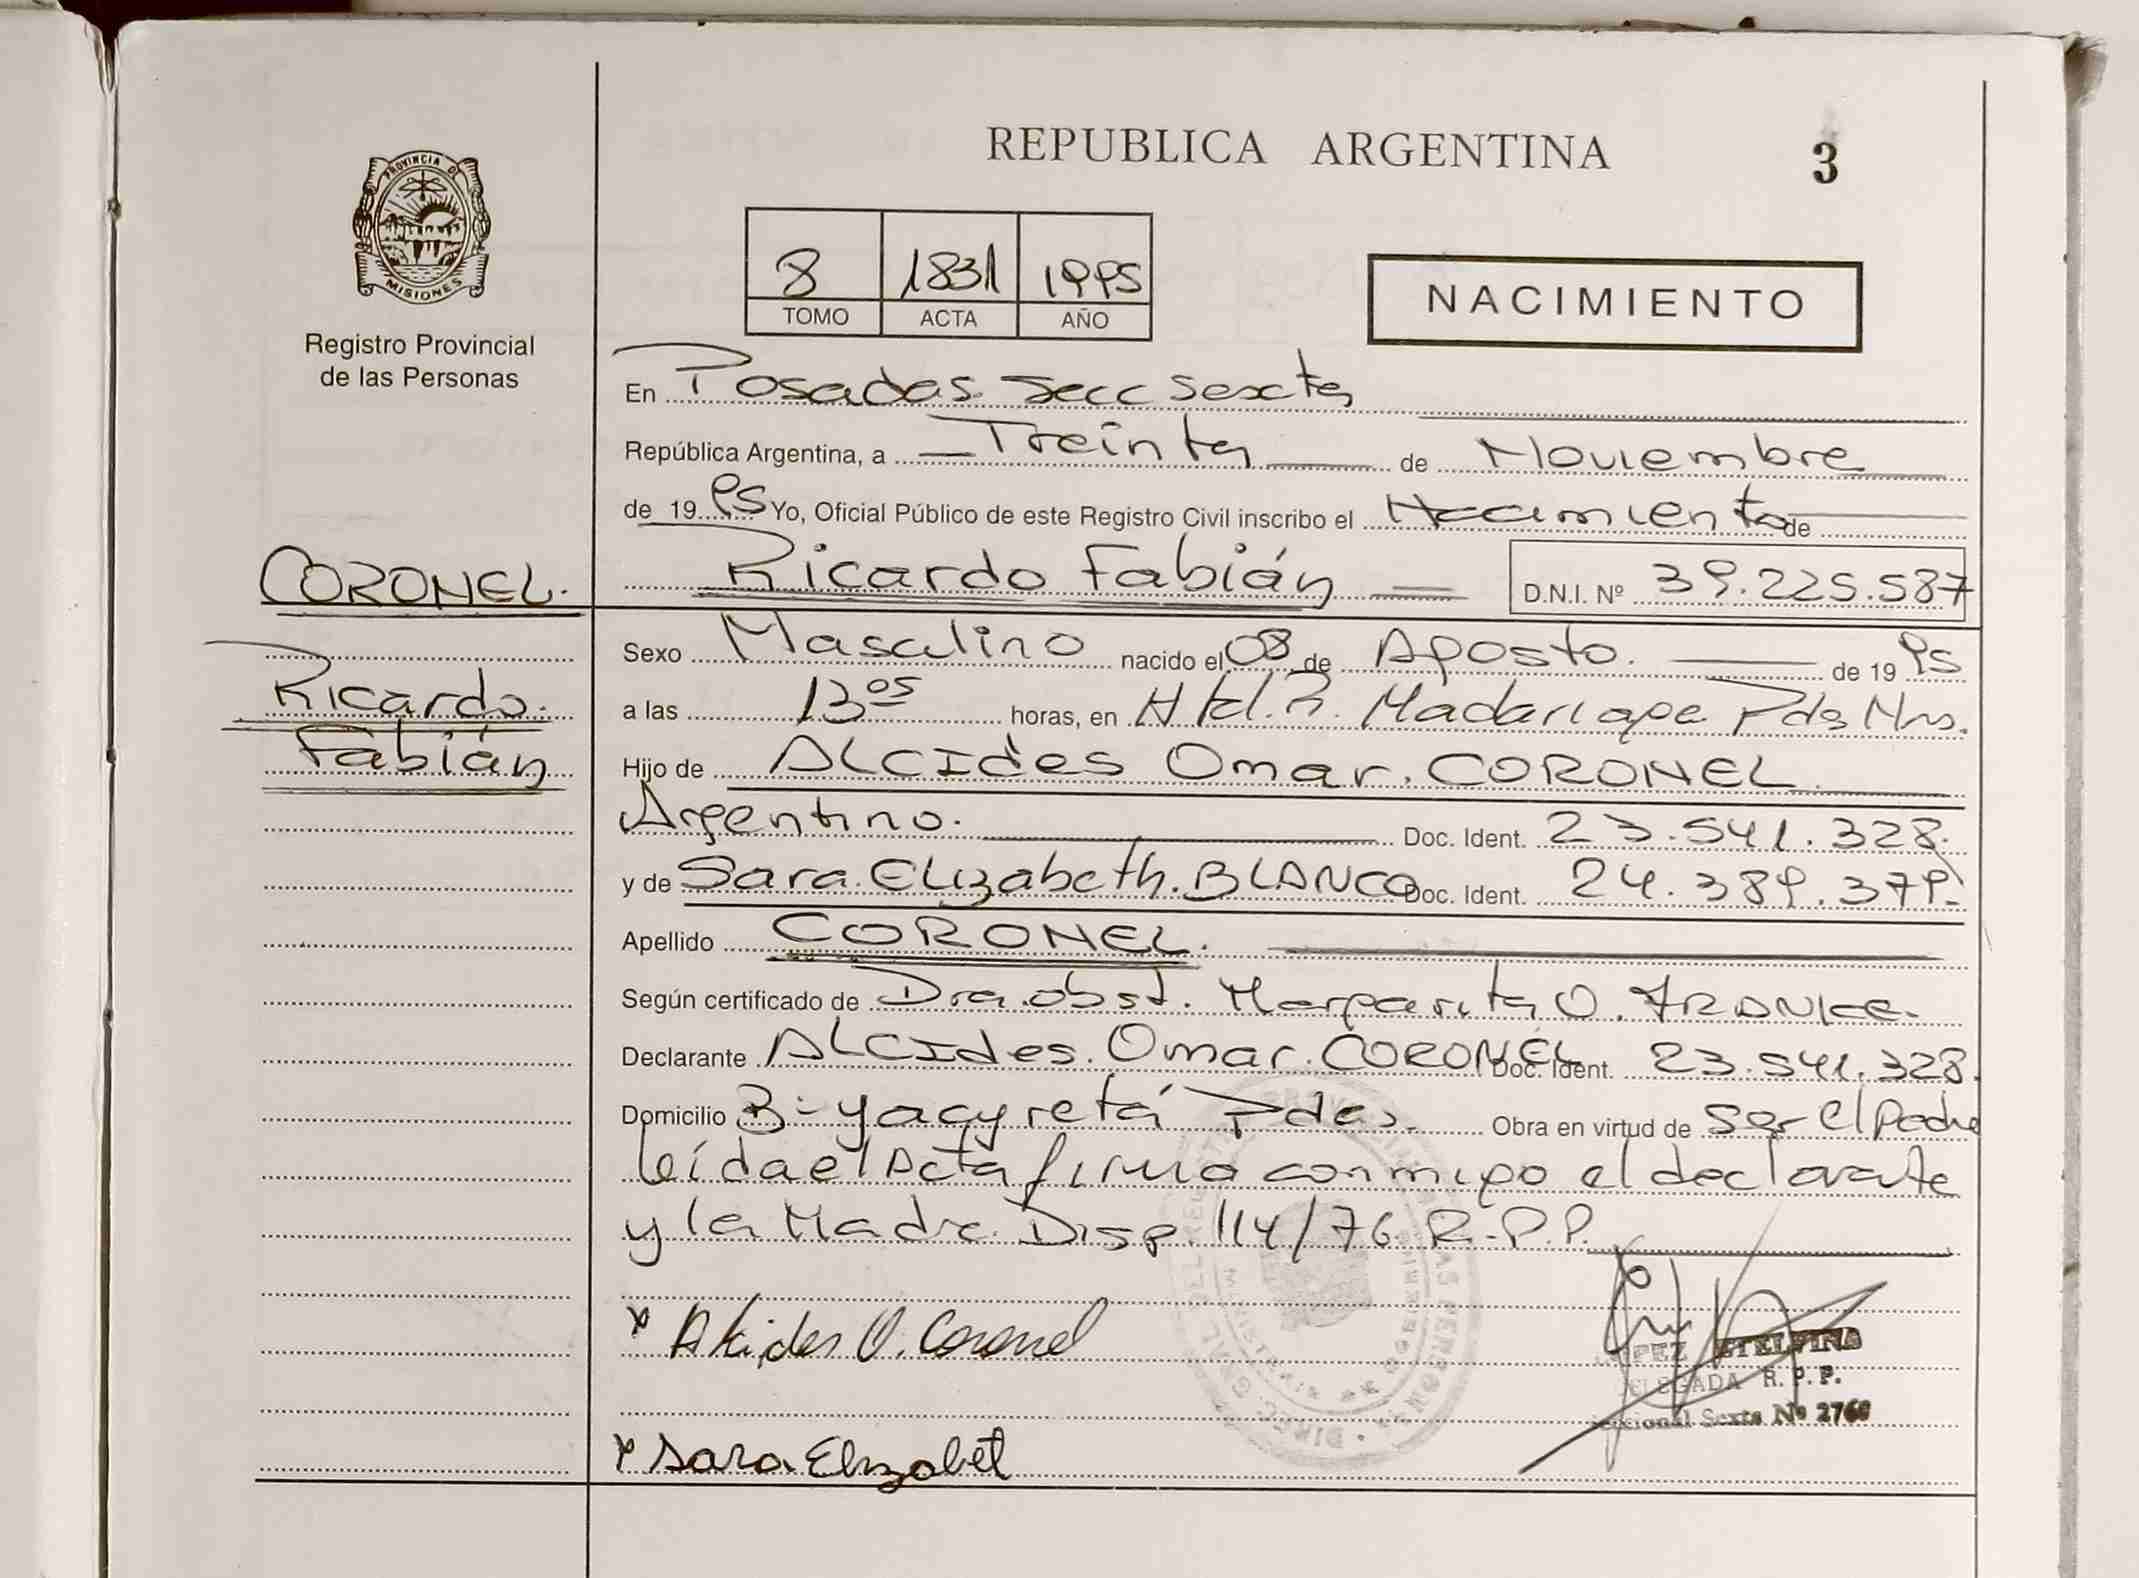 REPUBLICA ARGENTINA
3
PROVINCIA DE
MISIONES
Registro Provincial
de las Personas
8 1831 1995
TOMO ACTA AÑO
NACIMIENTO
En Posadas. Secc Sexta
República Argentina, a Treinta de Noviembre
de 1995 Yo, Oficial Público de este Registro Civil inscribo el Nacimiento de
CORONEL.
Ricardo Fabián D.N.I. Nº 39.225.587
Sexo Masculino nacido el 08 de Agosto. de 1995
Ricardo.
a las 13 05 horas, en Htal. R. Madariaga. Pdas Mns.
Fabián
Hijo de ALCIdes Omar. CORONEL
Argentino. Doc. Ident. 23.541.328.
y de Sara. Elizabeth. BLANCO Doc. Ident. 24.389.379.
Apellido CORONEL.
Según certificado de Dra. obst. Margarita O. FRANKE.
Declarante ALCIdes. Omar. CORONEL Doc. Ident. 23.541.328.
Domicilio B- yacyretá Pdas. Obra en virtud de ser el padre
leída el Acta firma conmigo el declarante
y la Madre. Disp. 114/76 R.P.P.
x Alcides O. Coronel
LOPEZ ETELVINA
DELEGADA R. P. P.
Seccional Sexta Nº 2760
x Sara Elizabet